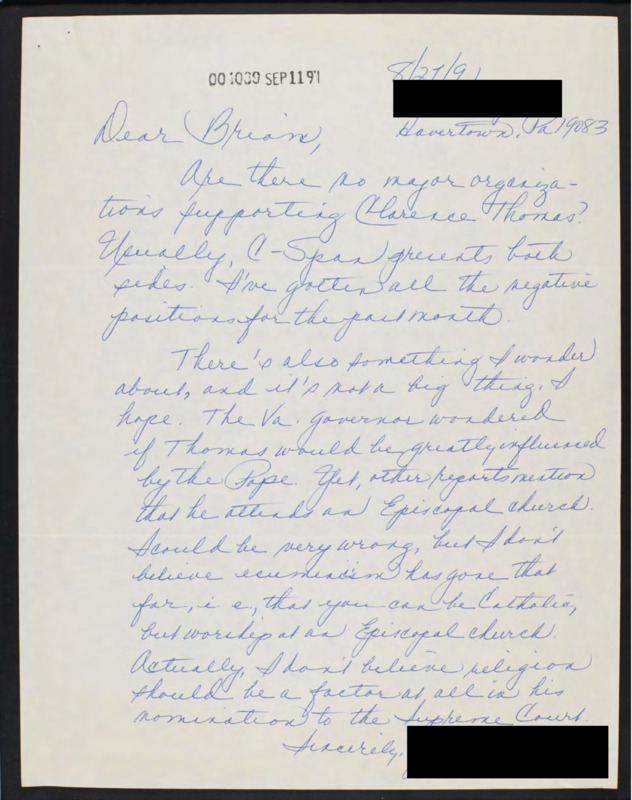 001039 SEP 11 91
8/27/91
Havertown, Pa 19083
Dear Brian,
Are there no major organiza-
tions supporting Clarence Thomas?
Usually, C-Span presents both
sides. I've gotten all the negative
positions for the past month.
There's also something I wonder
about, and it's not a big thing, I
hope. The Va. governor wondered
if Thomas would be greatly influenced
by the Pope. Yet, other reports mention
that he attends an Episcopal church.
I could be very wrong, but I don't
believe ecumenicism has gone that
far, i e, that you can be Catholic,
but worship at an Episcopal church.
Actually, I don't believe religion
should be a factor at all in his
nomination to the Supreme Court.
Sincerely,